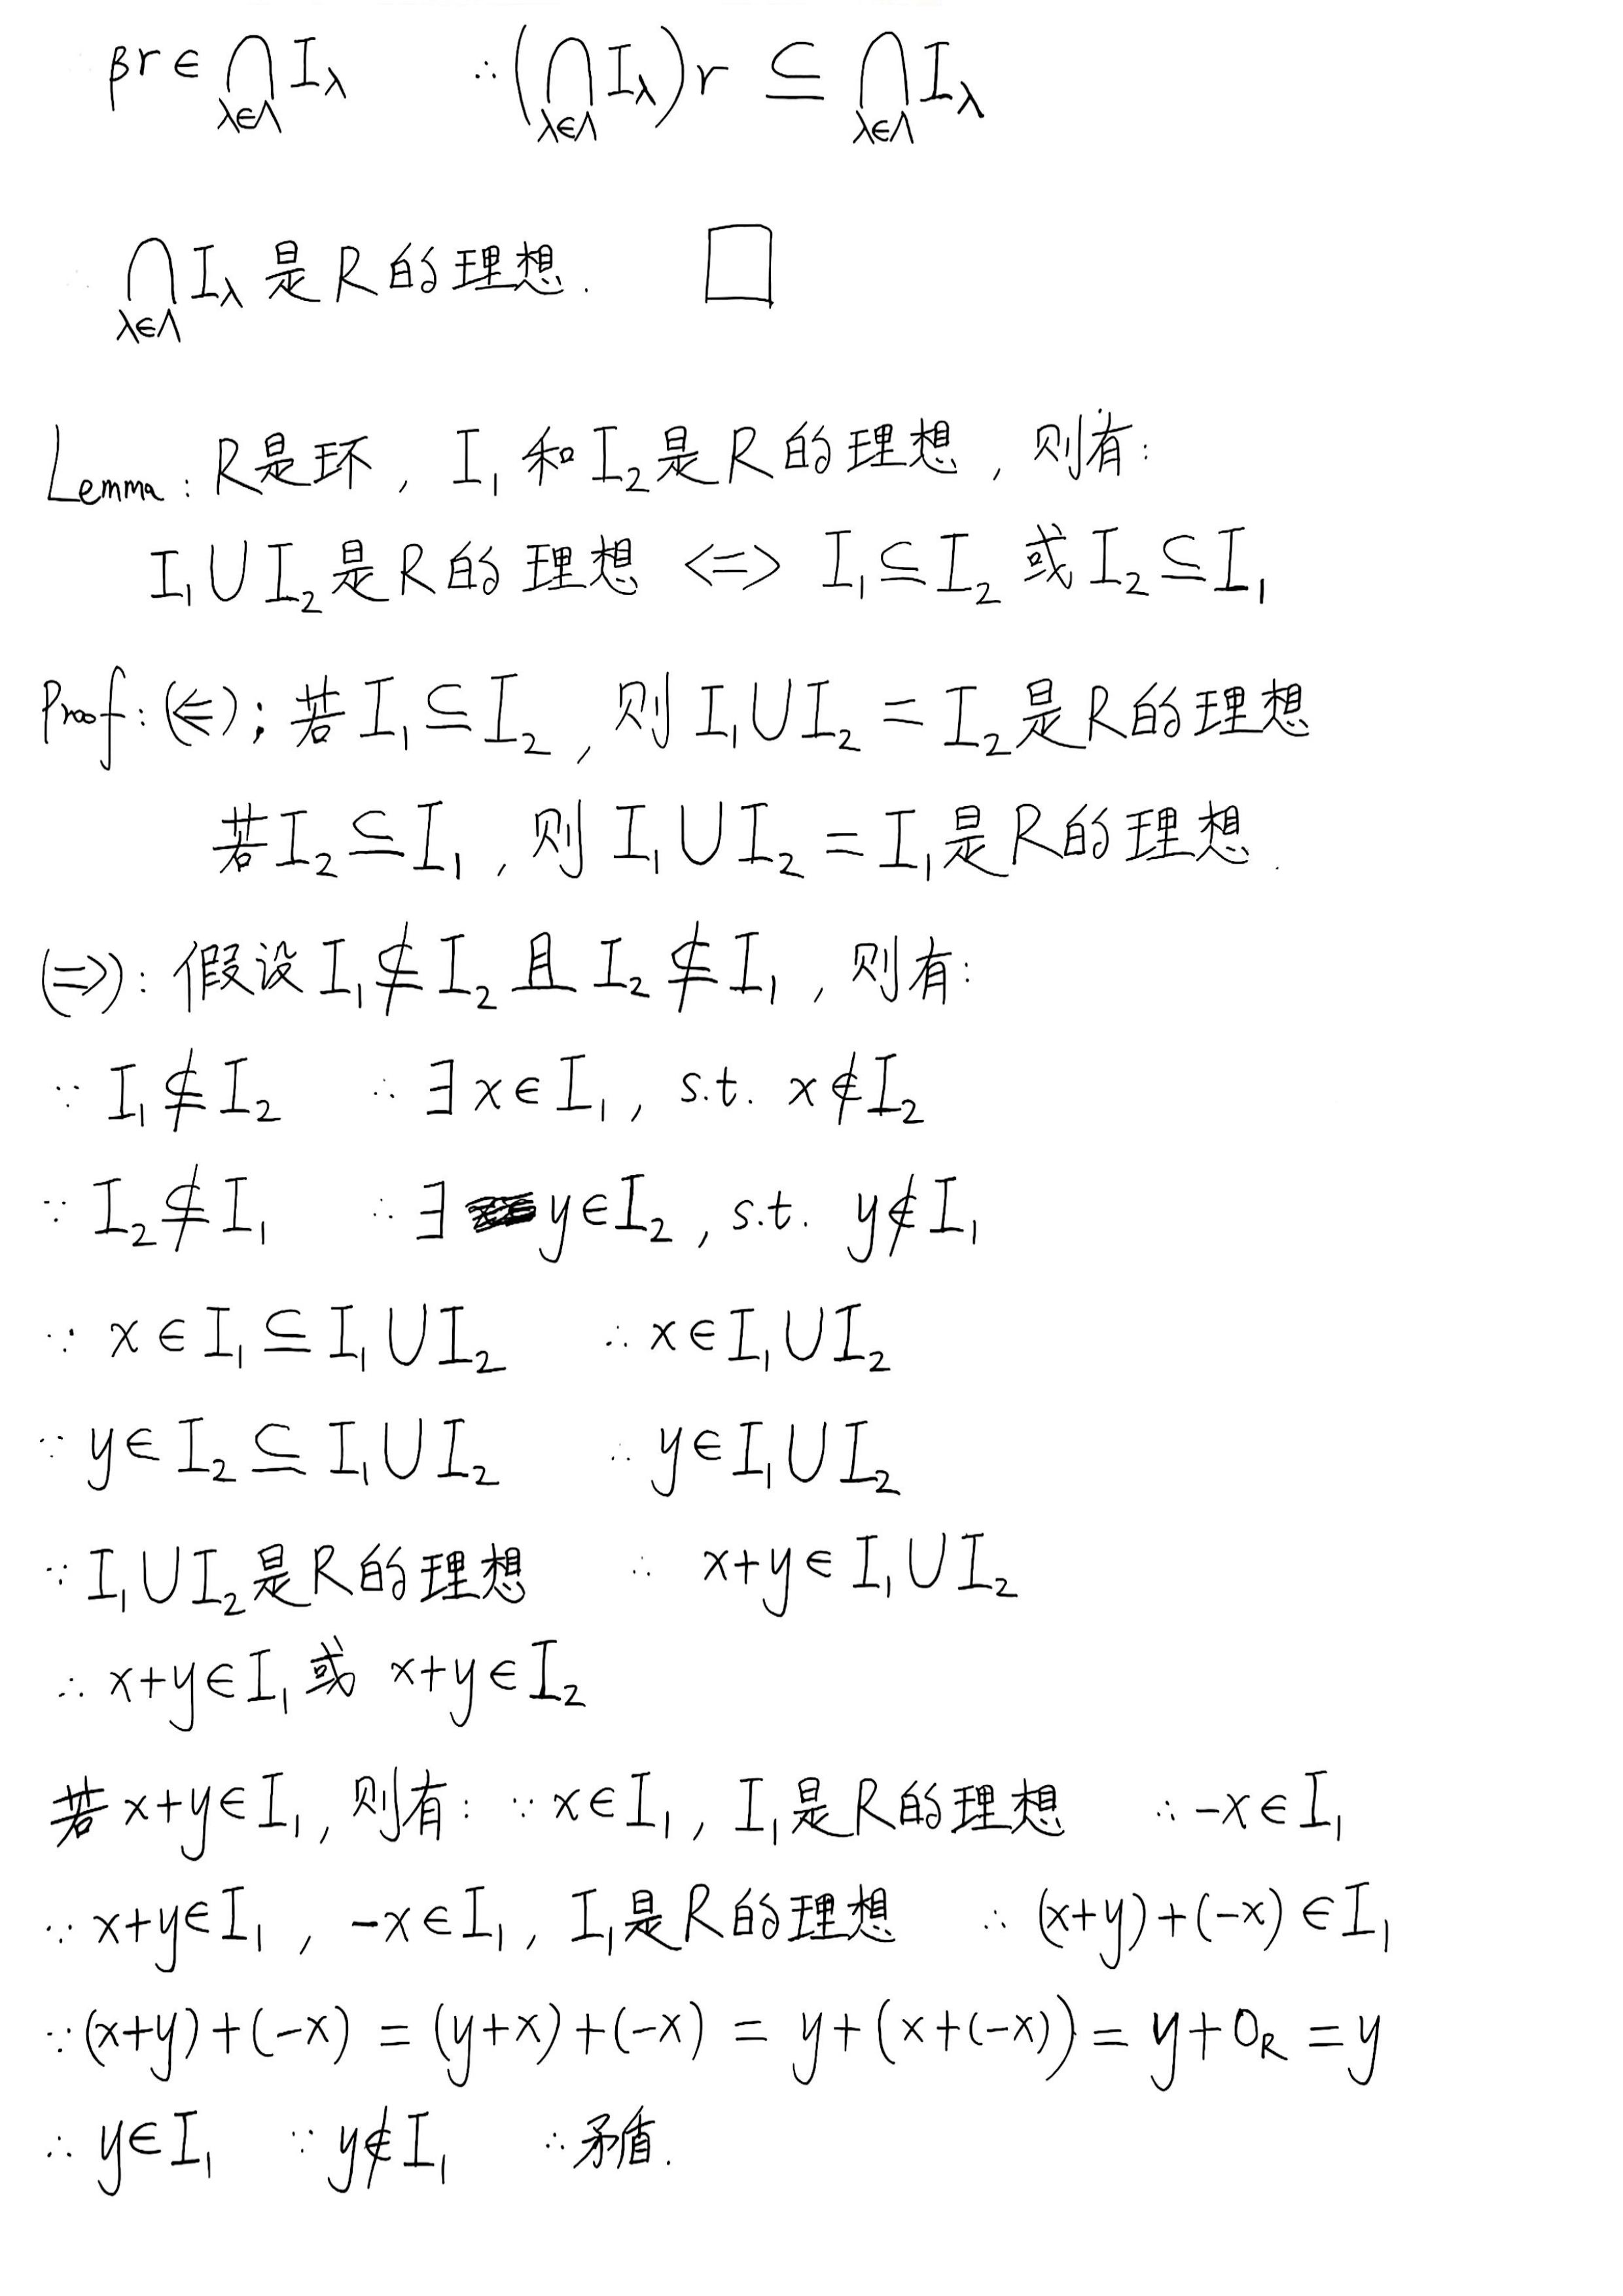 βr ∈ ⋂_{λ∈Λ} I_λ ∴ (⋂_{λ∈Λ} I_λ) r ⊆ ⋂_{λ∈Λ} I_λ
⋂_{λ∈Λ} I_λ 是 R 的理想. □
Lemma: R是环, I₁ 和 I₂ 是 R 的理想, 则有:
I₁∪I₂ 是 R 的理想 <=> I₁⊆I₂ 或 I₂⊆I₁
Proof: (⇐): 若 I₁⊆I₂, 则 I₁∪I₂ = I₂ 是 R 的理想
若 I₂⊆I₁, 则 I₁∪I₂ = I₁ 是 R 的理想.
(⇒): 假设 I₁⊈I₂ 且 I₂⊈I₁, 则有:
∵ I₁⊈I₂ ∴ ∃x∈I₁, s.t. x∉I₂
∵ I₂⊈I₁ ∴ ∃ y∈I₂, s.t. y∉I₁
∵ x∈I₁⊆I₁∪I₂ ∴ x∈I₁∪I₂
∵ y∈I₂⊆I₁∪I₂ ∴ y∈I₁∪I₂
∵ I₁∪I₂ 是 R 的理想 ∴ x+y∈I₁∪I₂
∴ x+y∈I₁ 或 x+y∈I₂
若 x+y∈I₁, 则有: ∵ x∈I₁, I₁ 是 R 的理想 ∴ -x∈I₁
∵ x+y∈I₁, -x∈I₁, I₁ 是 R 的理想 ∴ (x+y)+(-x)∈I₁
∵ (x+y)+(-x) = (y+x)+(-x) = y+(x+(-x)) = y+0_R = y
∴ y∈I₁ ∵ y∉I₁ ∴ 矛盾.